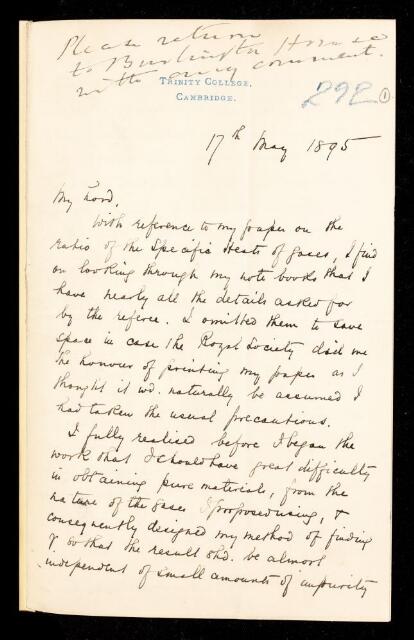 Please return
to Burlington House
with any comment.
TRINITY COLLEGE,
CAMBRIDGE.
292 1
17th May 1895
My Lord,
With reference to my paper on the
ratio of the Specific Heats of gases, I find
on looking through my note books that I
have nearly all the details asked for
by the referee. I omitted them to save
space in case the Royal Society did me
the honour of printing my paper as I
thought it wd. naturally be assumed I
had taken the usual precautions.
I fully realised before I began the
work that I should have great difficulty
in obtaining pure materials, from the
nature of the gases I proposed using, &
consequently designed my method of finding
γ so that the result shd. be almost
independent of small amounts of impurity